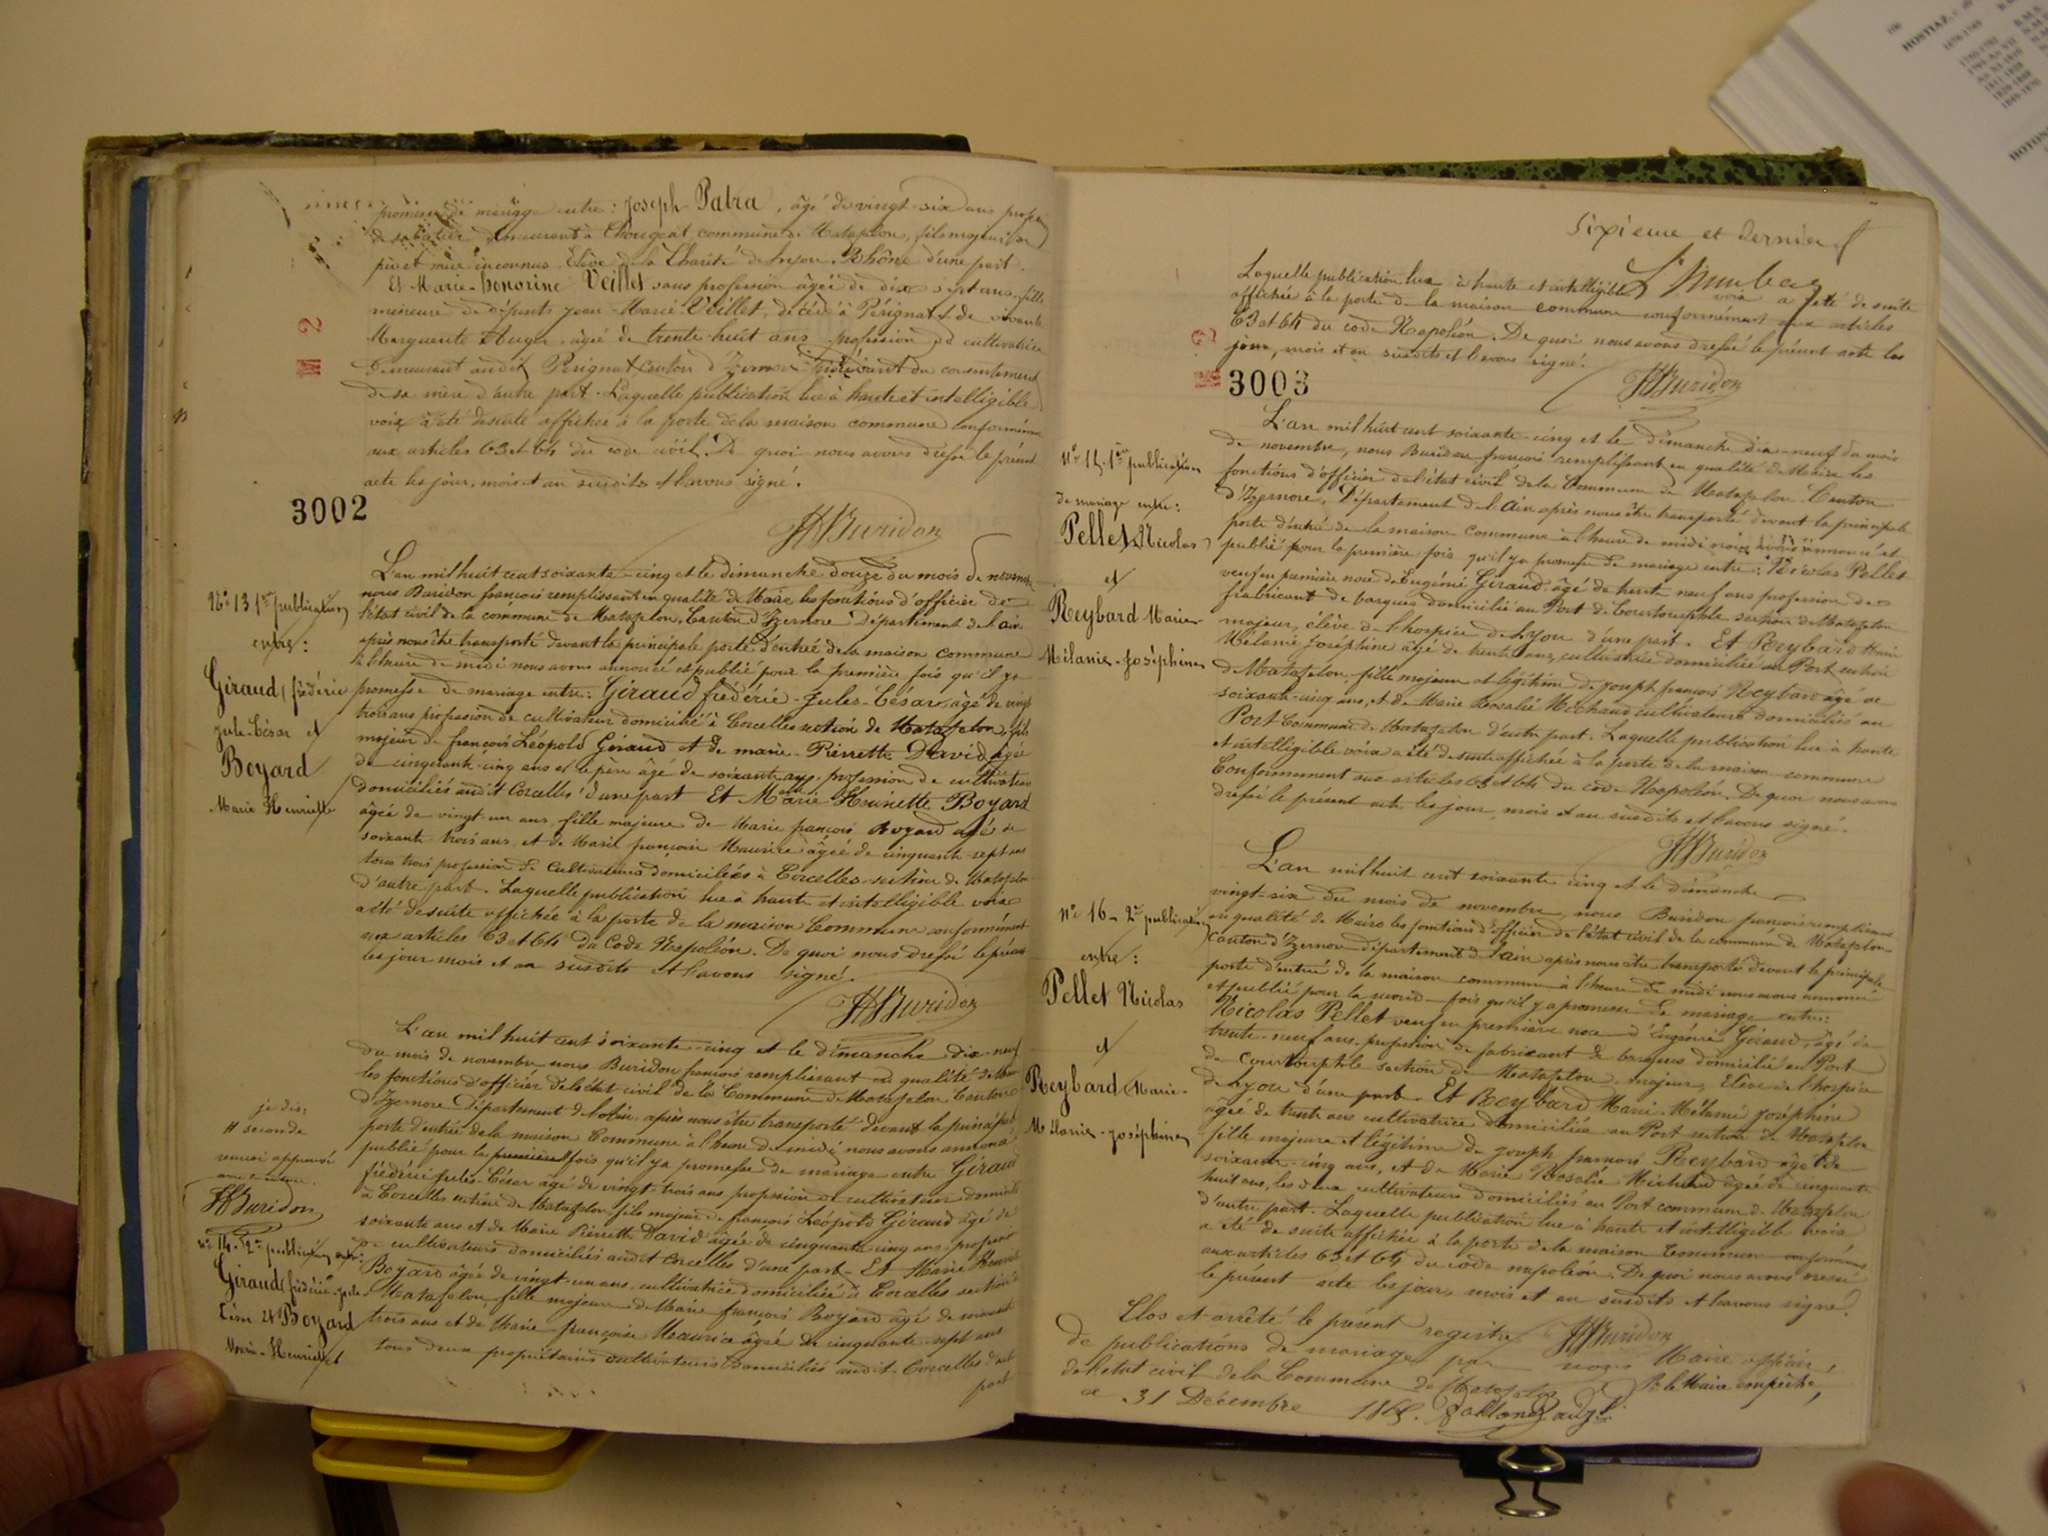 promesse de mariage entre : Joseph Patra, âgé de vingt-six ans profes
de sabotier demeurant à Chougeat commune de Matafelon, fils majeur de
père et mère inconnus. Elève de la Charité de Lyon, Rhône d'une part.
Et Marie-honorine Veillet sans profession âgée de dix sept ans, fille
mineure de défunts Jean-Marie Veillet, décédé à Pérignat et de vivante
Marguerite Auger, âgée de trente-huit ans profession de cultivatrice
demeurant audit Pérignat canton d'Izernore du consentement
de sa mère d'autre part. Laquelle publication lue à haute et intelligible
voix a été de suite affichée à la porte de la maison commune conformément
aux articles 63 et 64 du code civil. De quoi nous avons dressé le présent
acte les jour, mois et an susdits et l'avons signé.
3002
Buridon
L'an mil huit cent soixante-cinq et le dimanche douze du mois de novembre
nous Buridon françois remplissant en qualité de Maire les fonctions d'officier de
l'état civil de la commune de Matafelon, Canton d'Izernore Département de l'ain
après nous être transporté devant la principale porte d'entrée de la maison commune
à l'heure de midi nous avons annoncé et publié pour la première fois qu'il y a
promesse de mariage entre : Giraud frédéric-Jules-César, âgé de vingt
trois ans profession de cultivateur domicilié à Corcelles section de Matafelon, fils
majeur de françois Léopold Giraud et de marie-Pierrette David âgée
de cinquante-cinq ans et le père âgé de soixante ans profession de cultivateurs
domiciliés audit Corcelles d'une part Et Marie Henriette Boyard
âgée de vingt-un ans, fille majeure de Marie françois Boyard âgé de
soixante-trois ans, et de Marie françoise Maurice âgée de cinquante-sept ans
tous trois profession de cultivateurs domiciliés à Corcelles section de Matafelon
d'autre part. Laquelle publication lue à haute et intelligible voix
a été de suite affichée à la porte de la maison Commune conformément
aux articles 63 et 64 du Code Napoléon. De quoi nous dressé le présent
les jour mois et an susdits et l'avons signé.
Buridon
N° 13 1ère publication
entre :
Giraud frédéric
jule-César et
Boyard
Marie Henriette
L'an mil huit cent soixante-cinq et le dimanche dix-neuf
du mois de novembre nous Buridon françois remplissant en qualité de Maire
les fonctions d'officier de l'état civil de la Commune de Matafelon Canton
d'Izernore Département de l'ain, après nous être transporté devant la principale
porte d'entrée de la maison Commune à l'heure de midi nous avons annoncé
publié pour la première fois qu'il y a promesse de mariage entre Giraud
frédéric jules-César âgé de vingt-trois ans profession de cultivateur domicilié
à Corcelles section de Matafelon fils majeur de françois Léopold Giraud âgé de
soixante ans et de Marie Pierrette David âgée de cinquante cinq ans, profession
de cultivateurs domiciliés audit Corcelles d'une part. Et Marie Henriette
Boyard âgée de vingt-un ans, cultivatrice domiciliée à Corcelles section de
Matafelon, fille majeure de Marie françois Boyard âgé de soixante
trois ans et de Marie-françoise Maurice âgée de cinquante-sept ans
tous deux propriétaires cultivateurs domiciliés audit Corcelles d'aut
part
je dis:
# seconde
renvoi approuvé
Buridon
n° 14. 2e publication entre:
Giraud frédéric-jule
César et Boyard
Marie-Henriette
sixieme et dernier f
Laquelle publication lue à haute et intelligible voix a été de suite
affichée à la porte de la maison commune conformément aux articles
63 et 64 du code Napoléon. De quoi nous avons dressé le présent acte les
jour, mois et an susdits et l'avons signé.
3003
Buridon
L'an mil huit cent soixante-cinq et le dimanche dix-neuf du mois
de novembre, nous Buridon françois remplissant en qualité de Maire les
fonctions d'officier de l'état civil de la Commune de Matafelon Canton
d'Izernore, Département de l'ain après nous être transporté devant la principale
porte d'entrée de la maison Commune à l'heure de midi nous avons annoncé et
publié pour la première fois qu'il y a promesse de mariage entre : Nicolas Pellet
veuf en première noce de Eugénie Giraud, âgé de trente neuf ans profession de
fabricant de barques domicilié au Port de Courtouphle section de Matafelon
majeur, élève de l'hospice de Lyon d'une part. Et Reybard Marie
Mélanie Joséphine âgée de trente ans, cultivatrice domiciliée au Port section
de Matafelon, fille majeure et légitime de joseph françois Reybard âgé de
soixante-cinq ans, et de Marie Rosalie Michaud cultivateurs domiciliés au
Port Commune de Matafelon d'autre part. Laquelle publication lue à haute
et intelligible voix a été de suite affichée à la porte de la maison commune
Conformément aux articles 63 et 64 du Code Napoléon. De quoi nous avons
dressé le présent acte les jour, mois et an susdits et l'avons signé.
Buridon
n° 15. 1ère publication
de mariage entre :
Pellet Nicolas
et
Reybard Marie-
Mélanie-Joséphine
L'an mil huit cent soixante cinq et le dimanche
vingt-six du mois de novembre, nous Buridon françois remplissant
en qualité de Maire les fonctions d'officier de l'état civil de la commune de Matafelon
canton d'Izernore département de l'ain après nous être transporté devant la principale
porte d'entrée de la maison commune à l'heure de midi nous avons annoncé
et publié pour la seconde fois qu'il y a promesse de mariage entre :
Nicolas Pellet veuf en première noce d'Eugénie Giraud, âgé de
trente-neuf ans, profession de fabricant de barques domicilié au Port
de Courtouphle section de Matafelon, majeur, Elève de l'hospice
de Lyon d'une part. Et Reybard Marie-Mélanie Joséphine
âgée de trente ans cultivatrice domiciliée au Port section de Matafelon
fille majeure et légitime de joseph françois Reybard âgé de
soixante-cinq ans, et de Marie Rosalie Michaud âgée de cinquante
huit ans, les deux cultivateurs domiciliés au Port commune de Matafelon
d'autre part. Laquelle publication lue à haute et intelligible voix
a été de suite affichée à la porte de la maison Commune conformément
aux articles 63 et 64 du code napoléon. De quoi nous avons dressé
le présent acte les jour, mois et an susdits et l'avons signé.
Buridon
n° 16-2e publication
entre :
Pellet Nicolas
et
Reybard Marie-
Mélanie-Joséphine
Clos et arrêté le présent registre
de publications de mariage par nous Maire officier
de l'état civil de la Commune de Matafelon
ce 31 Décembre 1865.
P. le Maire empêché,
HOSTIAZ